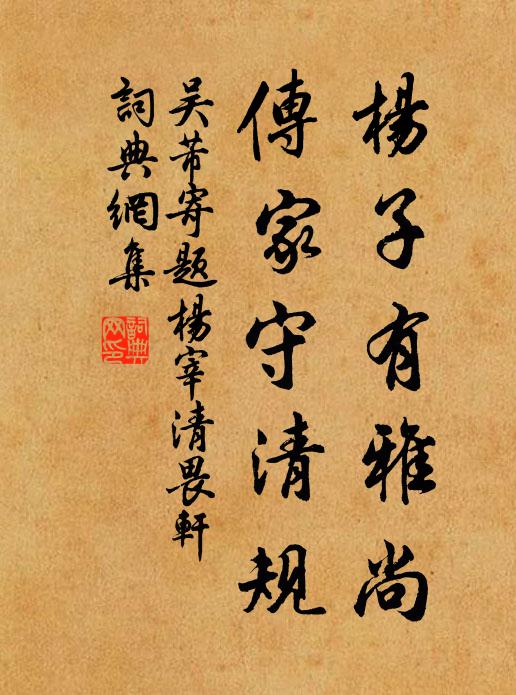 楊子有雅尚
傳家守清規
吳芾寄題楊宰清畏軒
詞典網集
詞典
网印